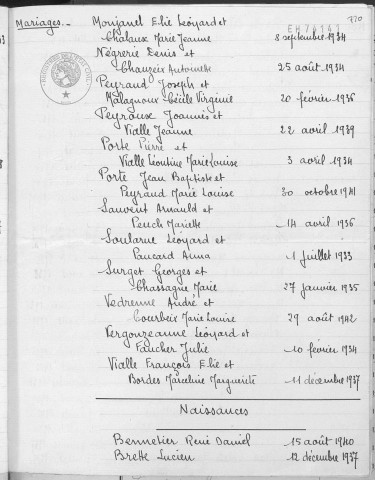 Mariages.
Monjanel Elie Léonard et
Chalaux Marie Jeanne 8 septembre 1934
EH74141
770
Négrerie Denis et
Chauzeix Antoinette 25 août 1934
Peyraud Joseph et
Malagnoux Cécile Virginie 20 février 1936
Peyraux Joannès et
Vialle Jeanne 22 avril 1939
Porte Pierre et
Vialle Léontine Marie Louise 3 avril 1934
Porte Jean Baptiste et
Peyraud Marie Louise 30 octobre 1941
Sauvent Arnauld et
Peuch Mariette 14 avril 1936
Soularue Léonard et
Paucard Anna 1 juillet 1933
Surget Georges et
Chassagne Marie 27 janvier 1935
Vedrenne André et
Courbeix Marie Louise 29 août 1942
Vergonzeanne Léonard et
Faucher Julie 10 février 1934
Vialle François Elie et
Bordes Marceline Marguerite 11 décembre 1937
Naissances
Bennetier René Daniel 15 août 1940
Brette Lucien 12 décembre 1937